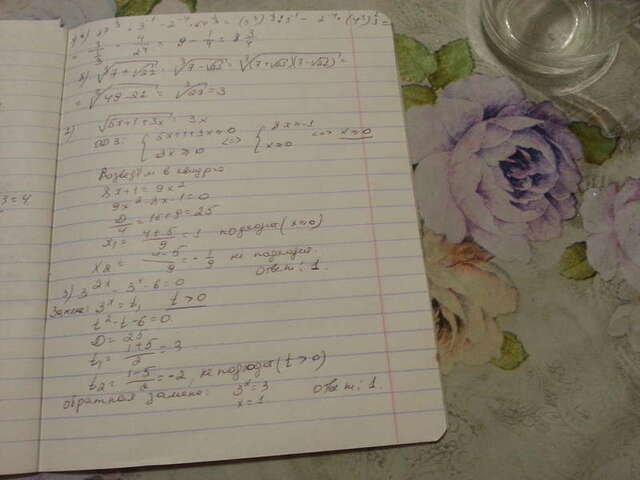 = 9 - 1/4 = 8 3/4
= ∛(49-22) = ∛27 = 3
2) √(5x+1+3x) = 3x
ОДЗ: { 5x+1+3x≥0 <=> { 8x≥-1 <=> x≥0
3x≥0 x≥0
Возведём в квадрат
8x+1=9x²
9x²-8x-1=0
D/4 = 16+9=25
x₁ = (4+5)/9 = 1 подходит (x≥0)
x₂ = (4-5)/9 = -1/9 не подходит.
Ответ: 1.
3) 3^2x - 3^x - 6 = 0
Замена: 3^x = t, t>0
t²-t-6=0
D=25
t₁ = (1+5)/2 = 3
t₂ = (1-5)/2 = -2, не подходит (t>0)
Обратная замена: 3^x=3 Ответ: 1.
x=1
3=4